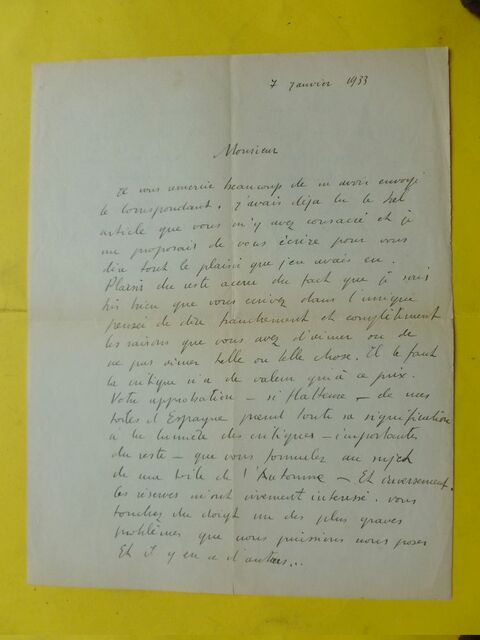 7 Janvier 1933
Monsieur
Je vous remercie beaucoup de m'avoir envoyé
le Correspondant. J'avais déjà lu le bel
article que vous m'y avez consacré et je
me proposais de vous écrire pour vous
dire tout le plaisir que j'en avais eu.
Plaisir du reste accru du fait que je sais
très bien que vous écrivez dans l'unique
pensée de dire franchement et complètement
les raisons que vous avez d'aimer ou de
ne pas aimer telle ou telle chose. Et le fait
la critique n'a de valeur qu'à ce prix.
Votre approbation - si flatteuse - de mes
toiles d'Espagne prend toute sa signification
à la lumière des critiques - importantes
du reste - que vous formulez au sujet
de ma toile de l'Automne - Et inversement.
Les réserves m'ont vivement intéressé. Vous
touchez du doigt un des plus graves
problèmes que nous puissions nous poser
Et il y en a d'autres...